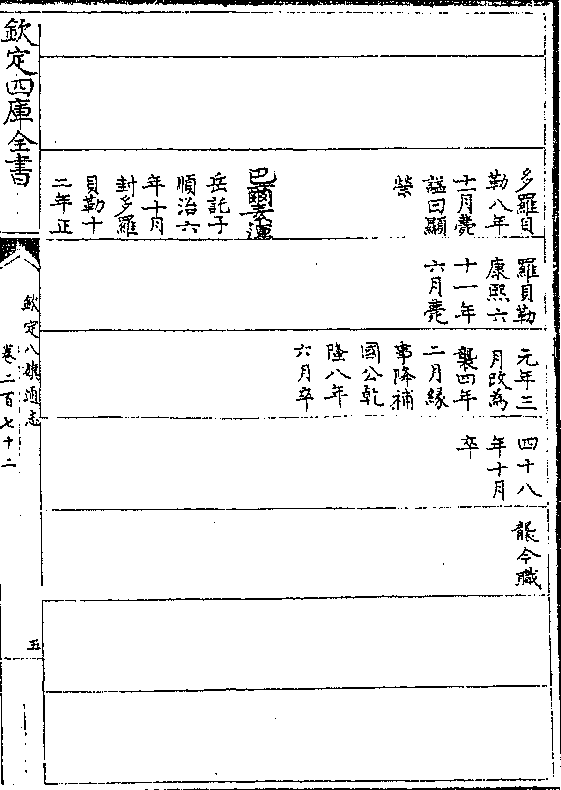 多羅貝
勒八年
十二月薨
諡曰顯
榮
巴爾楚渾
岳託子
順治六
年十月
封多羅
貝勒十
二年正
羅貝勒
康熙六
十一年
六月薨
元年三
月改為
襲四年
二月緣
事降補
國公乾
隆八年
六月卒
四十八
年十月
卒
襲今職
欽定四庫全書
欽定八旗通志
卷二百七十二
五